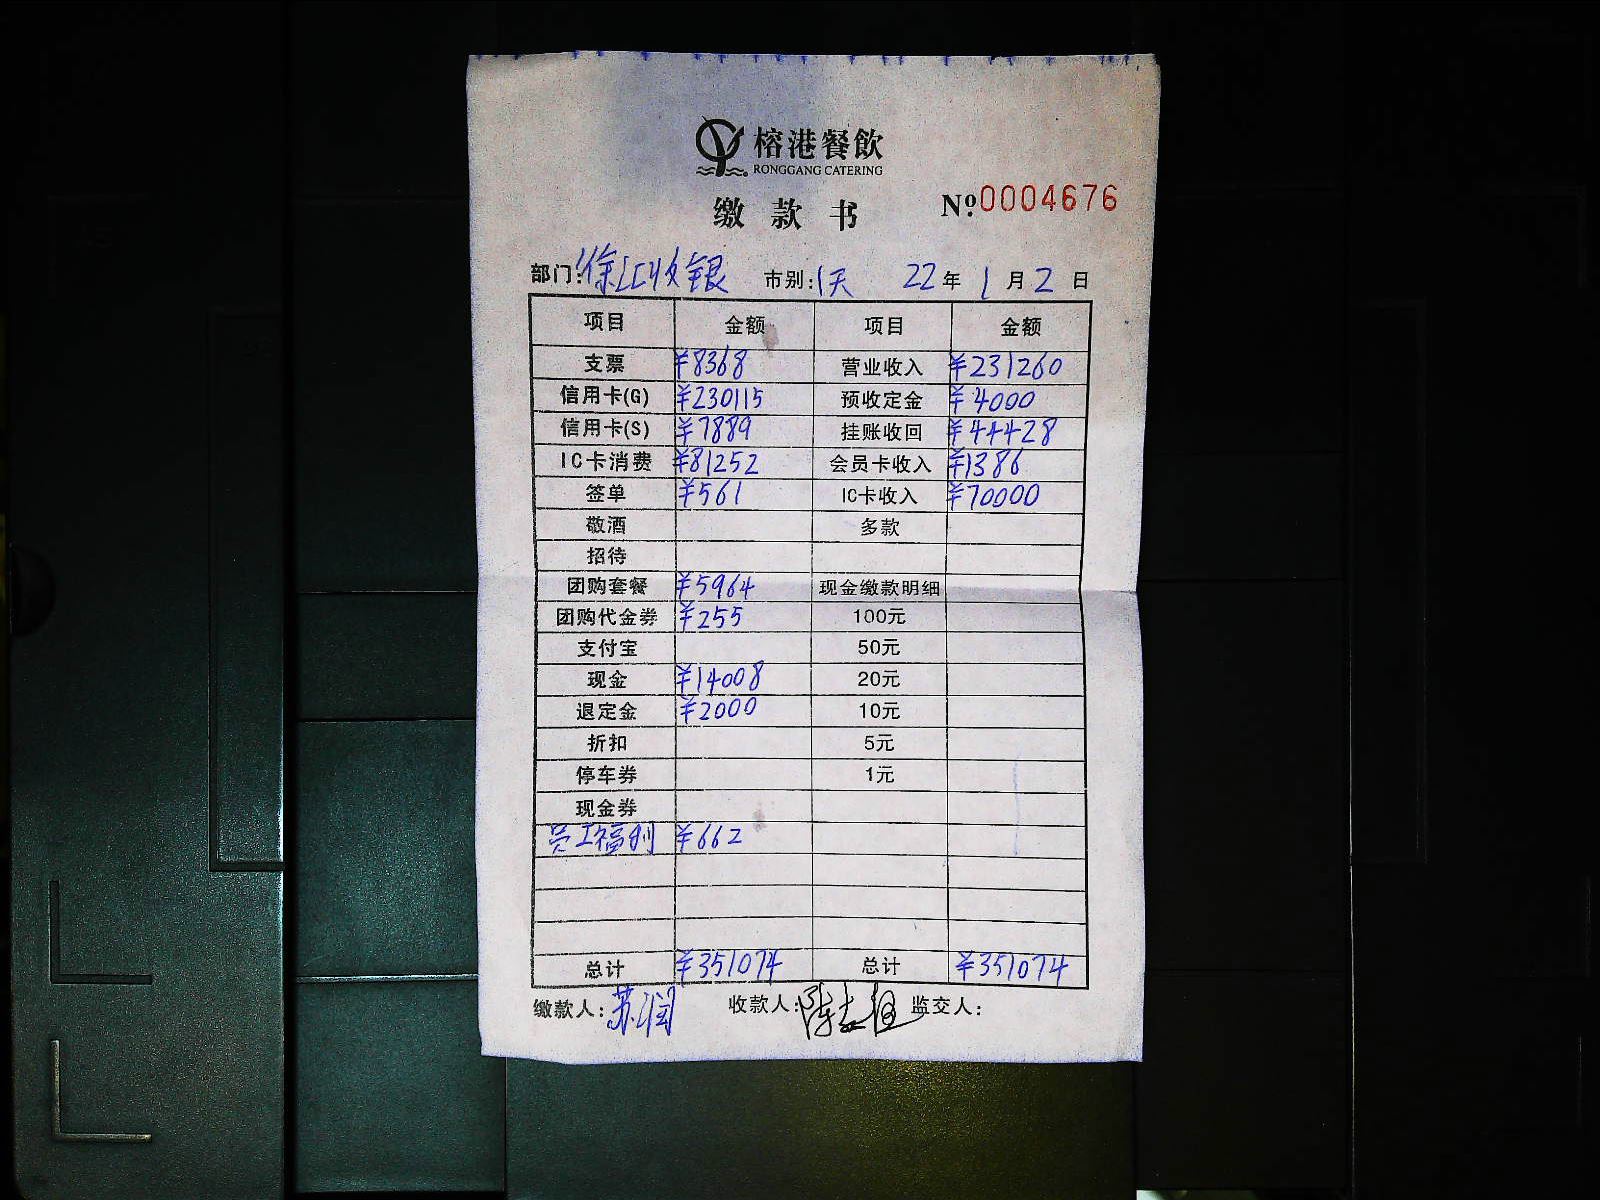 榕港餐飲
RONGGANG CATERING
缴款书 Nº.0004676
部门:徐汇收银 市别:1天 22年1月2日
项目 金额 项目 金额
支票 ¥8368 营业收入 ¥231260
信用卡(G) ¥230115 预收定金 ¥4000
信用卡(S) ¥7889 挂账收回 ¥44428
IC卡消费 ¥81252 会员卡收入 ¥1386
签单 ¥561 IC卡收入 ¥70000
敬酒 多款
招待
团购套餐 ¥5964 现金缴款明细
团购代金券 ¥255 100元
支付宝 50元
现金 ¥14008 20元
退定金 ¥2000 10元
折扣 5元
停车券 1元
现金券
员工福利 ¥662
总计 ¥351074 总计 ¥351074
缴款人:苏润 收款人:陈 监交人: